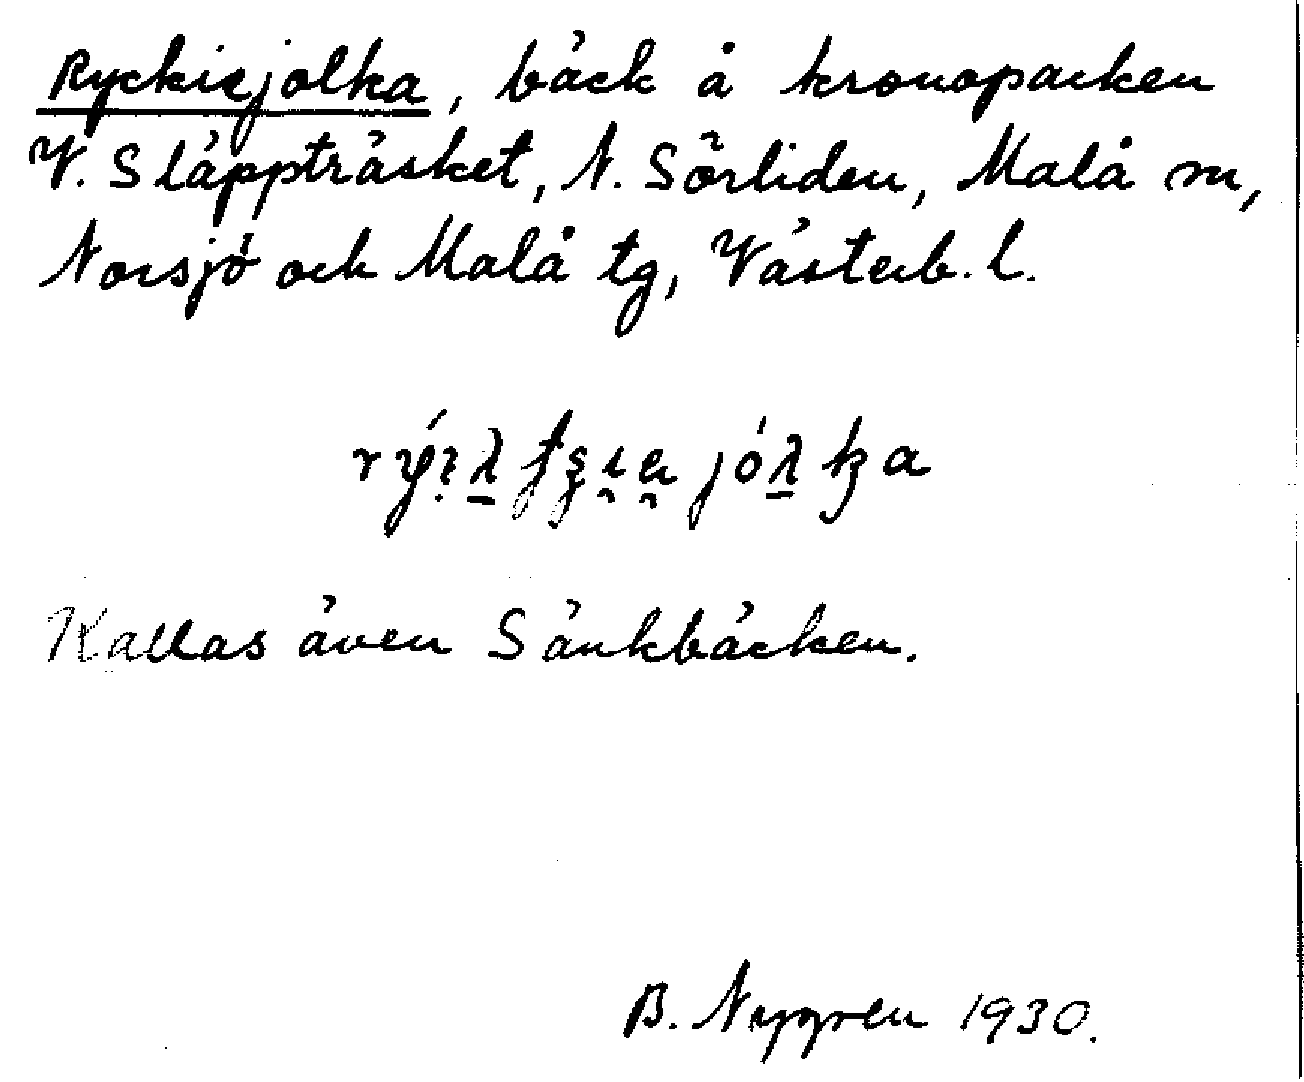 Ryckiejolka, bäck å kronoparken
V. Släppträsket, N. Sörliden, Malå sn,
Norsjö och Malå tg, Västerb. l.
Kallas även Sänkbäcken.
B. Nygren 1930.